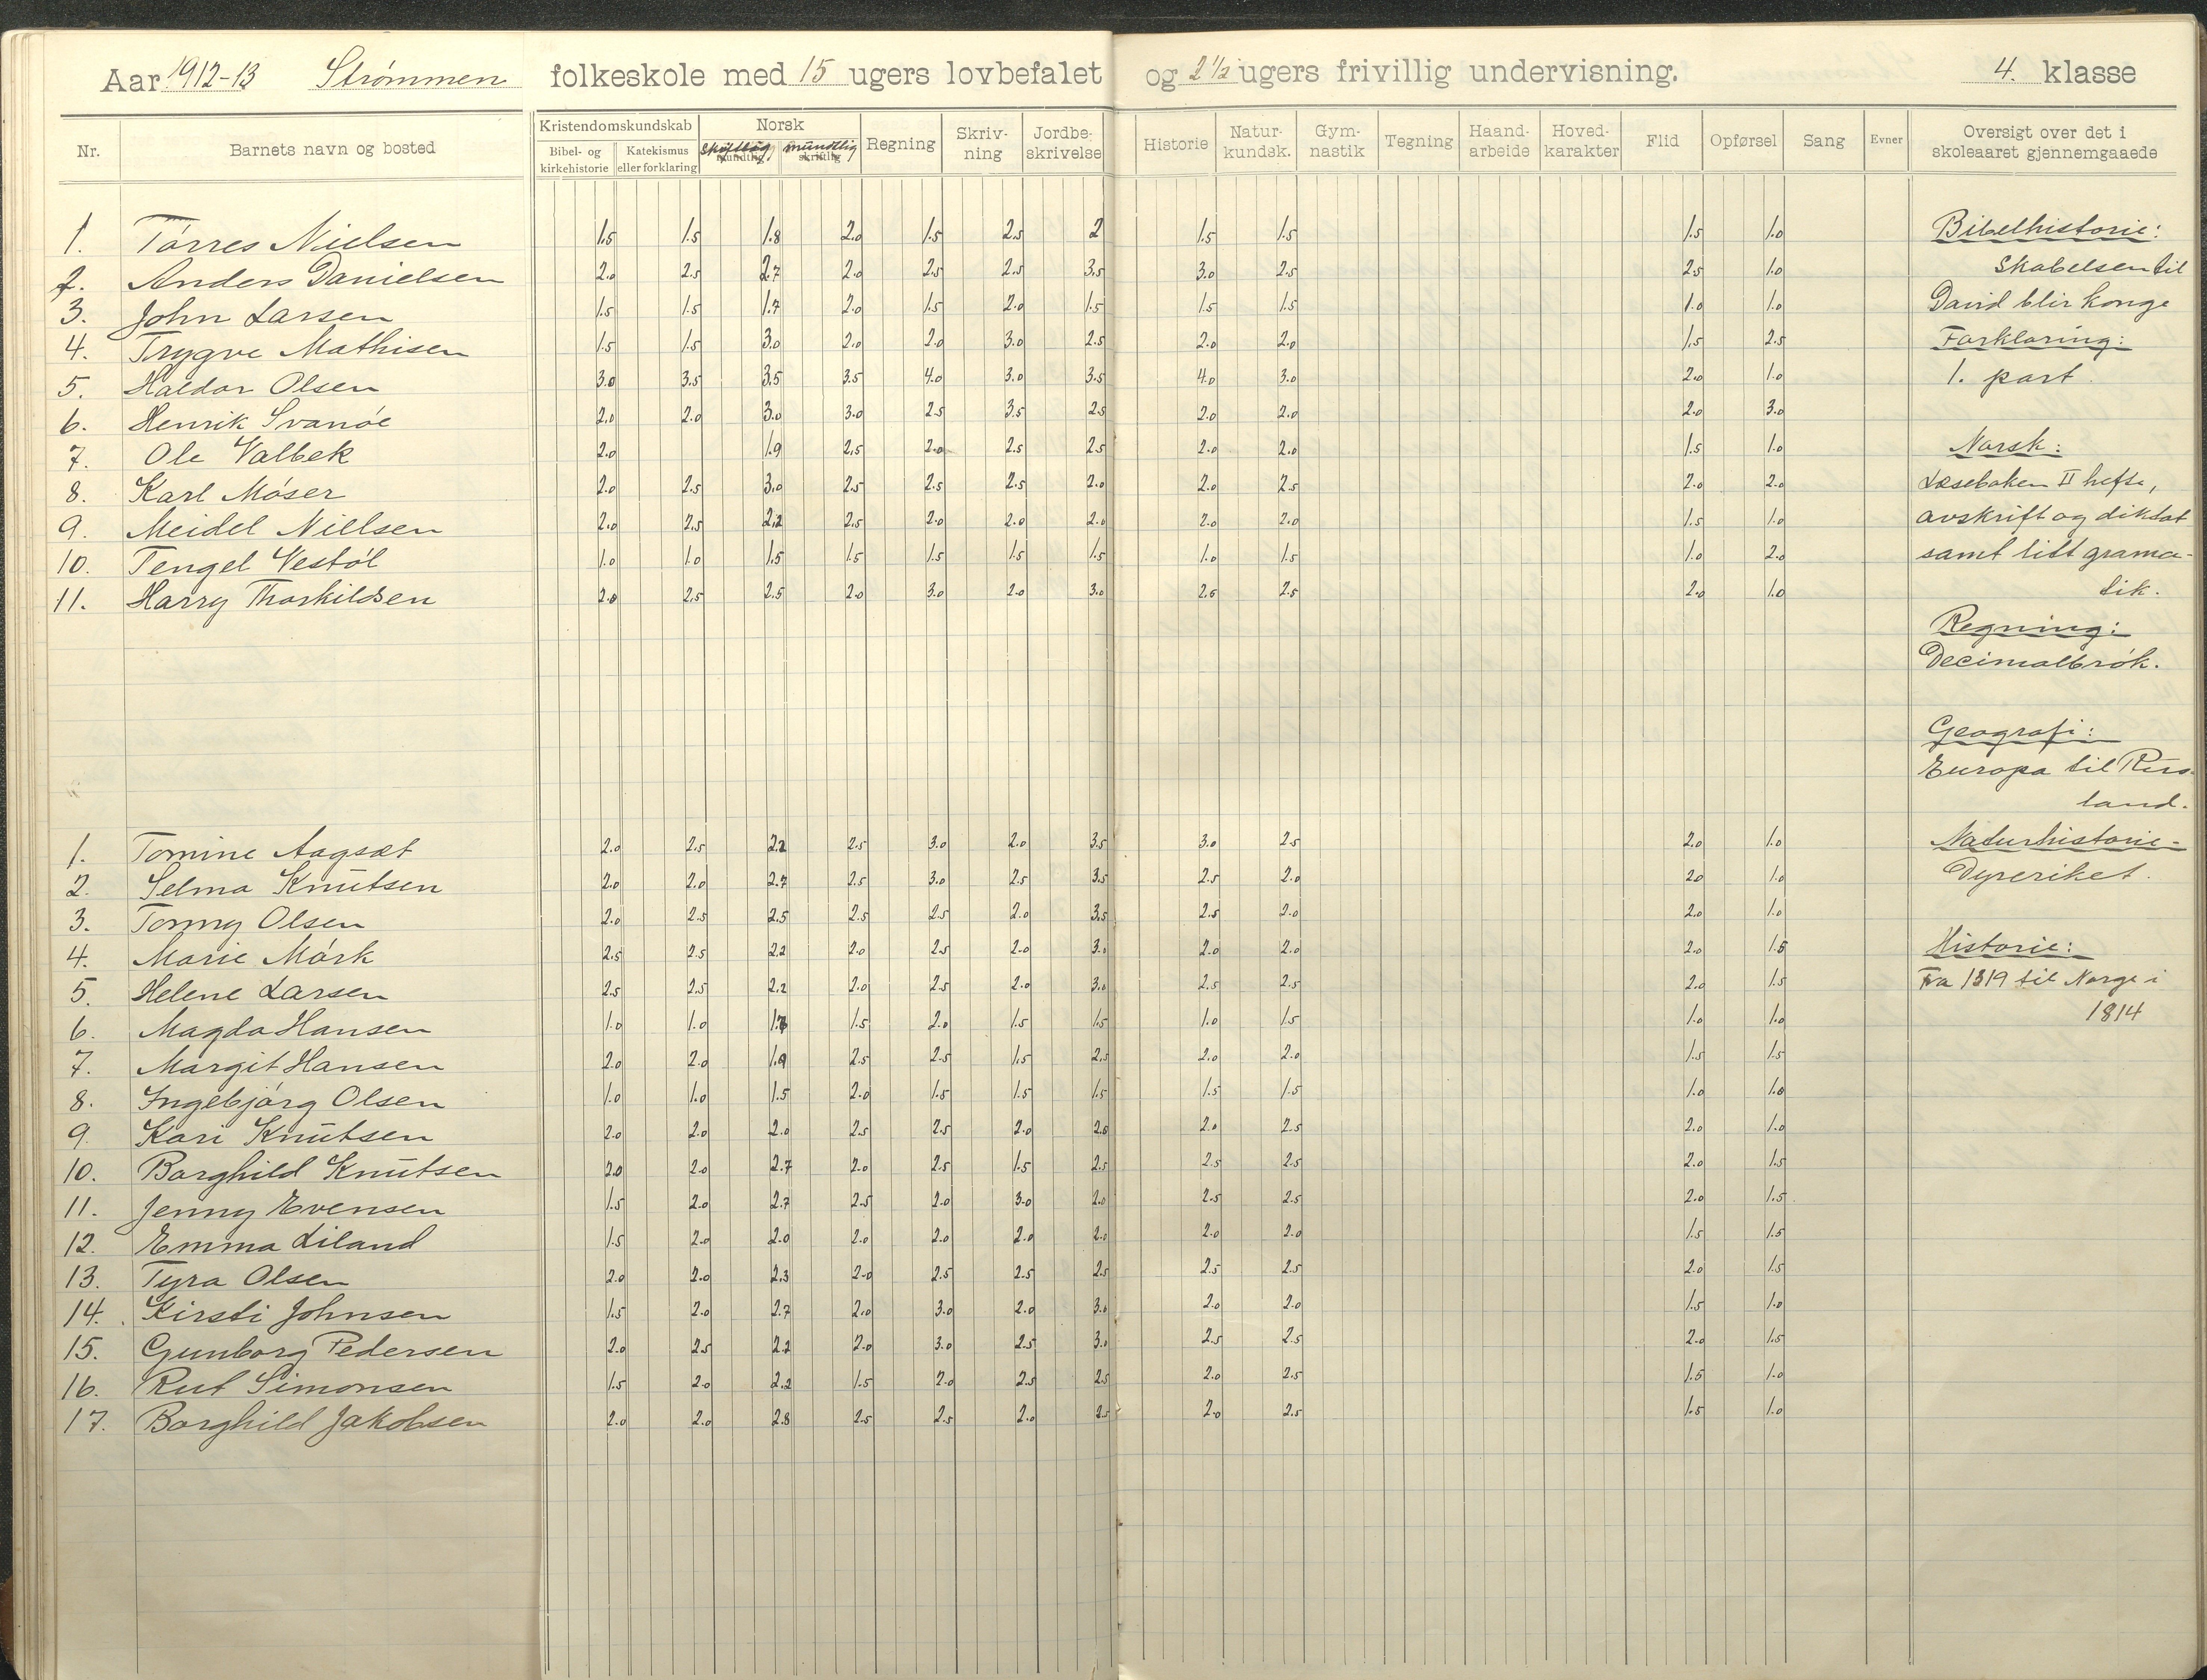 Aar 1912-13 Strømmen folkeskole med 15 ugers lovbefalet og 2 1/2 ugers frivillig undervisning. 4. klasse
Nr. Barnets navn og bosted Kristendomskundskab Bibel- og kirkehistorie Katekismus eller forklaring Norsk skriftlig mundtlig mundtlig skriftlig Regning Skriv-ning Jordbe-skrivelse Historie Natur-kundsk. Gym-nastik Tegning Haand-arbeide Hoved-karakter Flid Opførsel Sang Evner Oversigt over det i skoleaaret gjennemgaaede
1. Tørres Nielsen 1.5 1.5 1.8 2.0 1.5 2.5 2 1.5 1.5 1.5 1.0
2. Anders Danielsen 2.0 2.5 2.7 2.0 2.5 2.5 3.5 3.0 2.5 2.5 1.0
3. John Larsen 1.5 1.5 1.7 2.0 1.5 2.0 1.5 1.5 1.5 1.0 1.0
4. Trygve Mathisen 1.5 1.5 3.0 2.0 2.0 3.0 2.5 2.0 2.0 1.5 2.5
5. Haldor Olsen 3.0 3.5 3.5 3.5 4.0 3.0 3.5 4.0 3.0 2.0 1.0
6. Henrik Svanøe 2.0 2.0 3.0 3.0 2.5 3.5 2.5 2.0 2.0 2.0 3.0
7. Ole Valbek 2.0 1.9 2.5 2.0 2.5 2.5 2.0 2.0 1.5 1.0
8. Karl Møser 2.0 2.5 3.0 2.5 2.5 2.5 2.0 2.0 2.5 2.0 2.0
9. Meidel Nielsen 2.0 2.5 2.2 2.5 2.0 2.0 2.0 2.0 2.0 1.5 1.0
10. Tengel Vestøl 1.0 1.0 1.5 1.5 1.5 1.5 1.5 1.0 1.5 1.0 2.0
11. Harry Thorkildsen 2.0 2.5 2.5 2.0 3.0 2.0 3.0 2.5 2.5 2.0 1.0
1. Tomine Aagsæt 2.0 2.5 2.2 2.5 3.0 2.0 3.5 3.0 2.5 2.0 1.0
2. Selma Knutsen 2.0 2.0 2.7 2.5 3.0 2.5 3.5 2.5 2.0 2.0 1.0
3. Tormy Olsen 2.0 2.5 2.5 2.5 2.5 2.0 3.5 2.5 2.0 2.0 1.0
4. Marie Mørk 2.5 2.5 2.2 2.0 2.5 2.0 3.0 2.0 2.0 2.0 1.5
5. Helene Larsen 2.5 2.5 2.2 2.0 2.5 2.0 3.0 2.5 2.5 2.0 1.5
6. Magda Hansen 1.0 1.0 1.5 2.0 1.5 1.5 1.0 1.5 1.0 1.0
7. Margit Hansen 2.0 2.0 1.9 2.5 2.5 1.5 2.5 2.0 2.0 1.5 1.5
8. Ingebjørg Olsen 1.0 1.0 1.5 2.0 1.5 1.5 1.5 1.5 1.5 1.0 1.0
9. Kari Knutsen 2.0 2.0 2.0 2.5 2.5 2.0 2.0 2.0 2.5 2.0 1.0
10. Borghild Knutsen 2.0 2.0 2.7 2.0 2.5 1.5 2.5 2.5 2.5 2.0 1.5
11. Jenny Evensen 1.5 2.0 2.7 2.5 2.0 3.0 2.0 2.5 2.5 2.0 1.5
12. Emma Liland 1.5 2.0 2.0 2.0 2.0 2.0 2.0 2.0 2.0 1.5 1.5
13. Tyra Olsen 2.0 2.0 2.3 2.0 2.5 2.5 2.5 2.5 2.5 2.0 1.5
14. Kirsti Johnsen 1.5 2.0 2.7 2.0 3.0 2.0 3.0 2.0 2.0 1.5 1.0
15. Gunborg Pedersen 2.0 2.5 2.2 2.0 3.0 2.5 3.0 2.5 2.5 2.0 1.5
16. Rut Simonsen 1.5 2.0 2.2 1.5 2.0 2.5 2.5 2.0 2.5 1.5 1.0
17. Borghild Jakobsen 2.0 2.0 2.8 2.5 2.5 2.0 2.5 2.0 2.5 1.5 1.0
Bibelhistorie:
Skabelsen til
David blir konge
Forklaring:
1. part.
Norsk:
Læseboken II hefte,
avskrift og diktat
samt litt grama-
tik.
Regning:
Decimalbrøk.
Geografi:
Europa til Rus-
land.
Naturhistorie-
Dyreriket.
Historie:
Fra 1319 til Norge i
1814